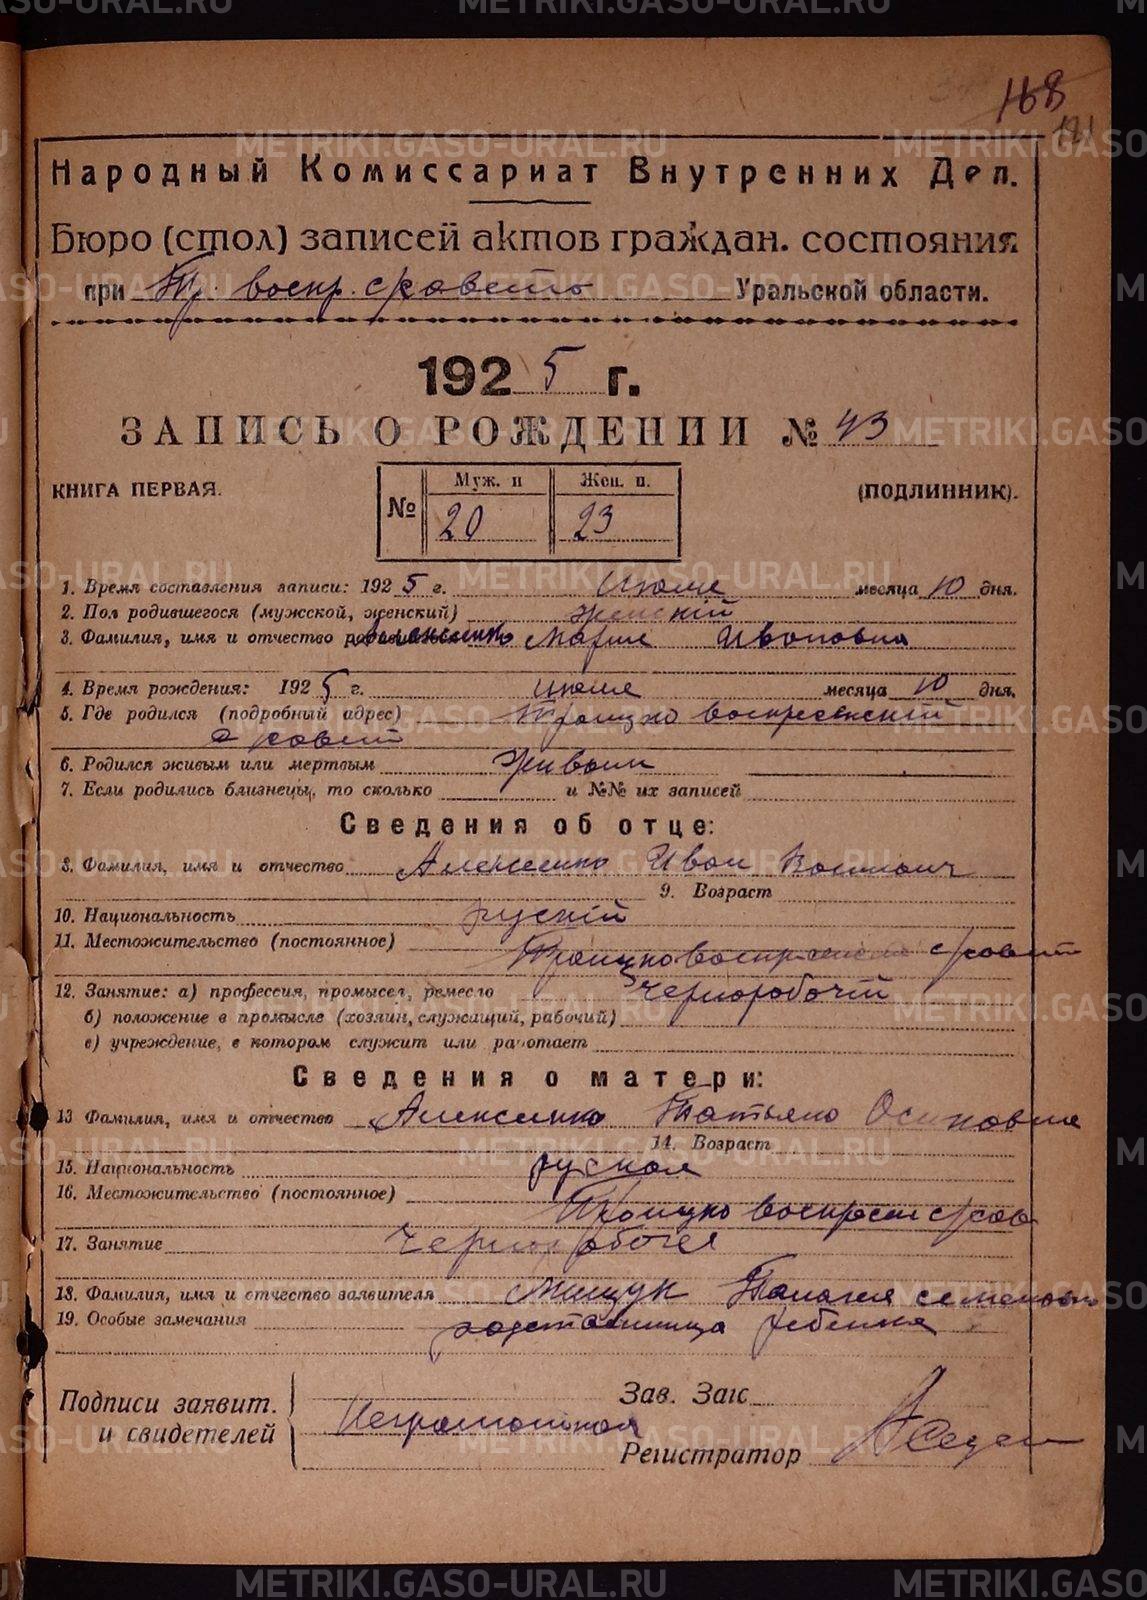 168
121
Народный Комиссариат Внутренних Дел.
Бюро (стол) записей актов граждан. состояния
при Тр. воскр. с/совета Уральской области.
1925 г.
ЗАПИСЬ О РОЖДЕНИИ № 43
КНИГА ПЕРВАЯ. (ПОДЛИННИК).
№ Муж. п Жен. п.
20 23
1. Время составления записи: 1925 г. Июля месяца 10 дня.
2. Пол родившегося (мужской, женский) женскій
3. Фамилия, имя и отчество Алексенко Мария Ивановна
4. Время рождения: 1925 г. июля месяца 10 дня.
5. Где родился (подробный адрес) Троицко воскресенский
с/совет
6. Родился живым или мертвым живым
7. Если родились близнецы, то сколько и №№ их записей
Сведения об отце:
8. Фамилия, имя и отчество Алексенко Иван
9. Возраст
10. Национальность рускій
11. Местожительство (постоянное)
Троицко с/совет
12. Занятие: а) профессия, промысел, ремесло Чернорабочій
б) положение в промысле (хозяин, служащий, рабочий)
в) учреждение, в котором служит или работает
Сведения о матери:
13 Фамилия, имя и отчество Алексенко Татьяна Осиповна
14. Возраст
15. Национальность руская
16. Местожительство (постоянное)
Троицко воскресен с/сов
17. Занятие Чернорабочея
18. Фамилия, имя и отчество заявителя Мищук
19. Особые замечания ребенка
Подписи заявит. Зав. Загс
и свидетелей Неграмотная
Регистратор
METRIKI.GASO-URAL.RU